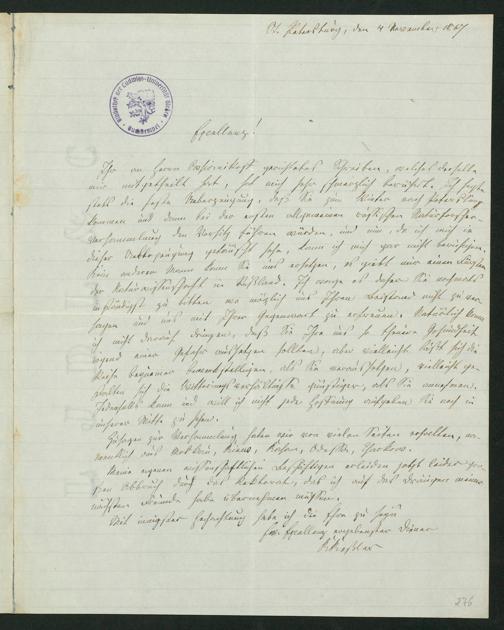 St. Petersburg, den 4 November, 1867
Excellenz!
Ihr an Herrn gerichtetes Schreiben, welches derselbe
mir mitgetheilt hat, hat mich sehr schmerzlich berührt. Ich hegte
stets die feste Ueberzeugung, daß Sie zum Winter nach Petersburg
kommen und dann bei der ersten allgemeinen russischen Naturforscher-
Versammlung den Vorsitz führen würden, und nun, da ich mich in
dieser Ueberzeugung getäuscht sehe, kann ich mich gar nicht beruhigen.
Kein anderer Mann kann Sie uns ersetzen, es giebt nur einen Fürsten
der Naturwissenschaft in Rußland. Ich wage es daher Sie nochmals
inständigst zu bitten wo möglich uns Ihren Beistand nicht zu ver-
sagen und uns mit Ihrer Gegenwart zu erfreuen. Natürlich kann
ich nicht darauf dringen, daß Sie Ihre uns so theure Gesundheit
irgend einer Gefahr aussetzen sollten, aber vielleicht läßt sich die
Reise bequemer bewerkstelligen, als Sie voraussetzen, vielleicht ge-
stalten sich die Witterungsverhältnisse günstiger, als Sie annehmen.
Jedenfalls kann und will ich nicht jede Hoffnung aufgeben Sie noch in
unserer Mitte zu sehen.
Zusagen zur Versammlung haben wir von vielen Seiten erhalten, na-
mentlich aus Moskau, Kiew, Kasan, Odessa, Charkow.
Meine eigenen wissenschaftlichen erleiden jetzt leider gro-
ßen Abbruch durch das Rectorat, das ich auf das Dringen meiner
Freunde habe übernehmen müssen.
Mit innigster Hochachtung habe ich die Ehre zu sein
Ew. Excellenz ergebenster Diener
K. Kessler
276